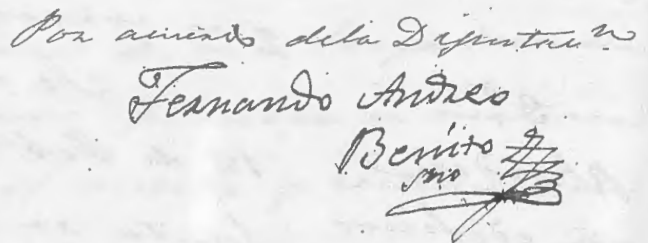 Por acuerdo dela Diputac.n
Fernando Andres
Benito
Srio